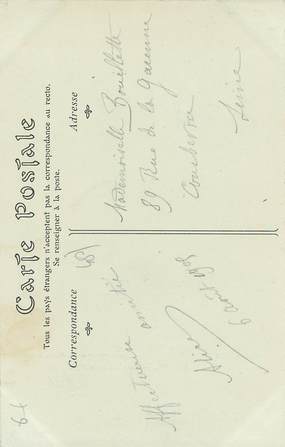 Carte Postale
Tous les pays étrangers n'acceptent pas la correspondance au recto.
Se renseigner à la poste.
Correspondance
Adresse
Affectueuse
amitié
6 août 1905
Mademoiselle Bouillette
89 Rue de la Garenne
Courbevoie
Seine